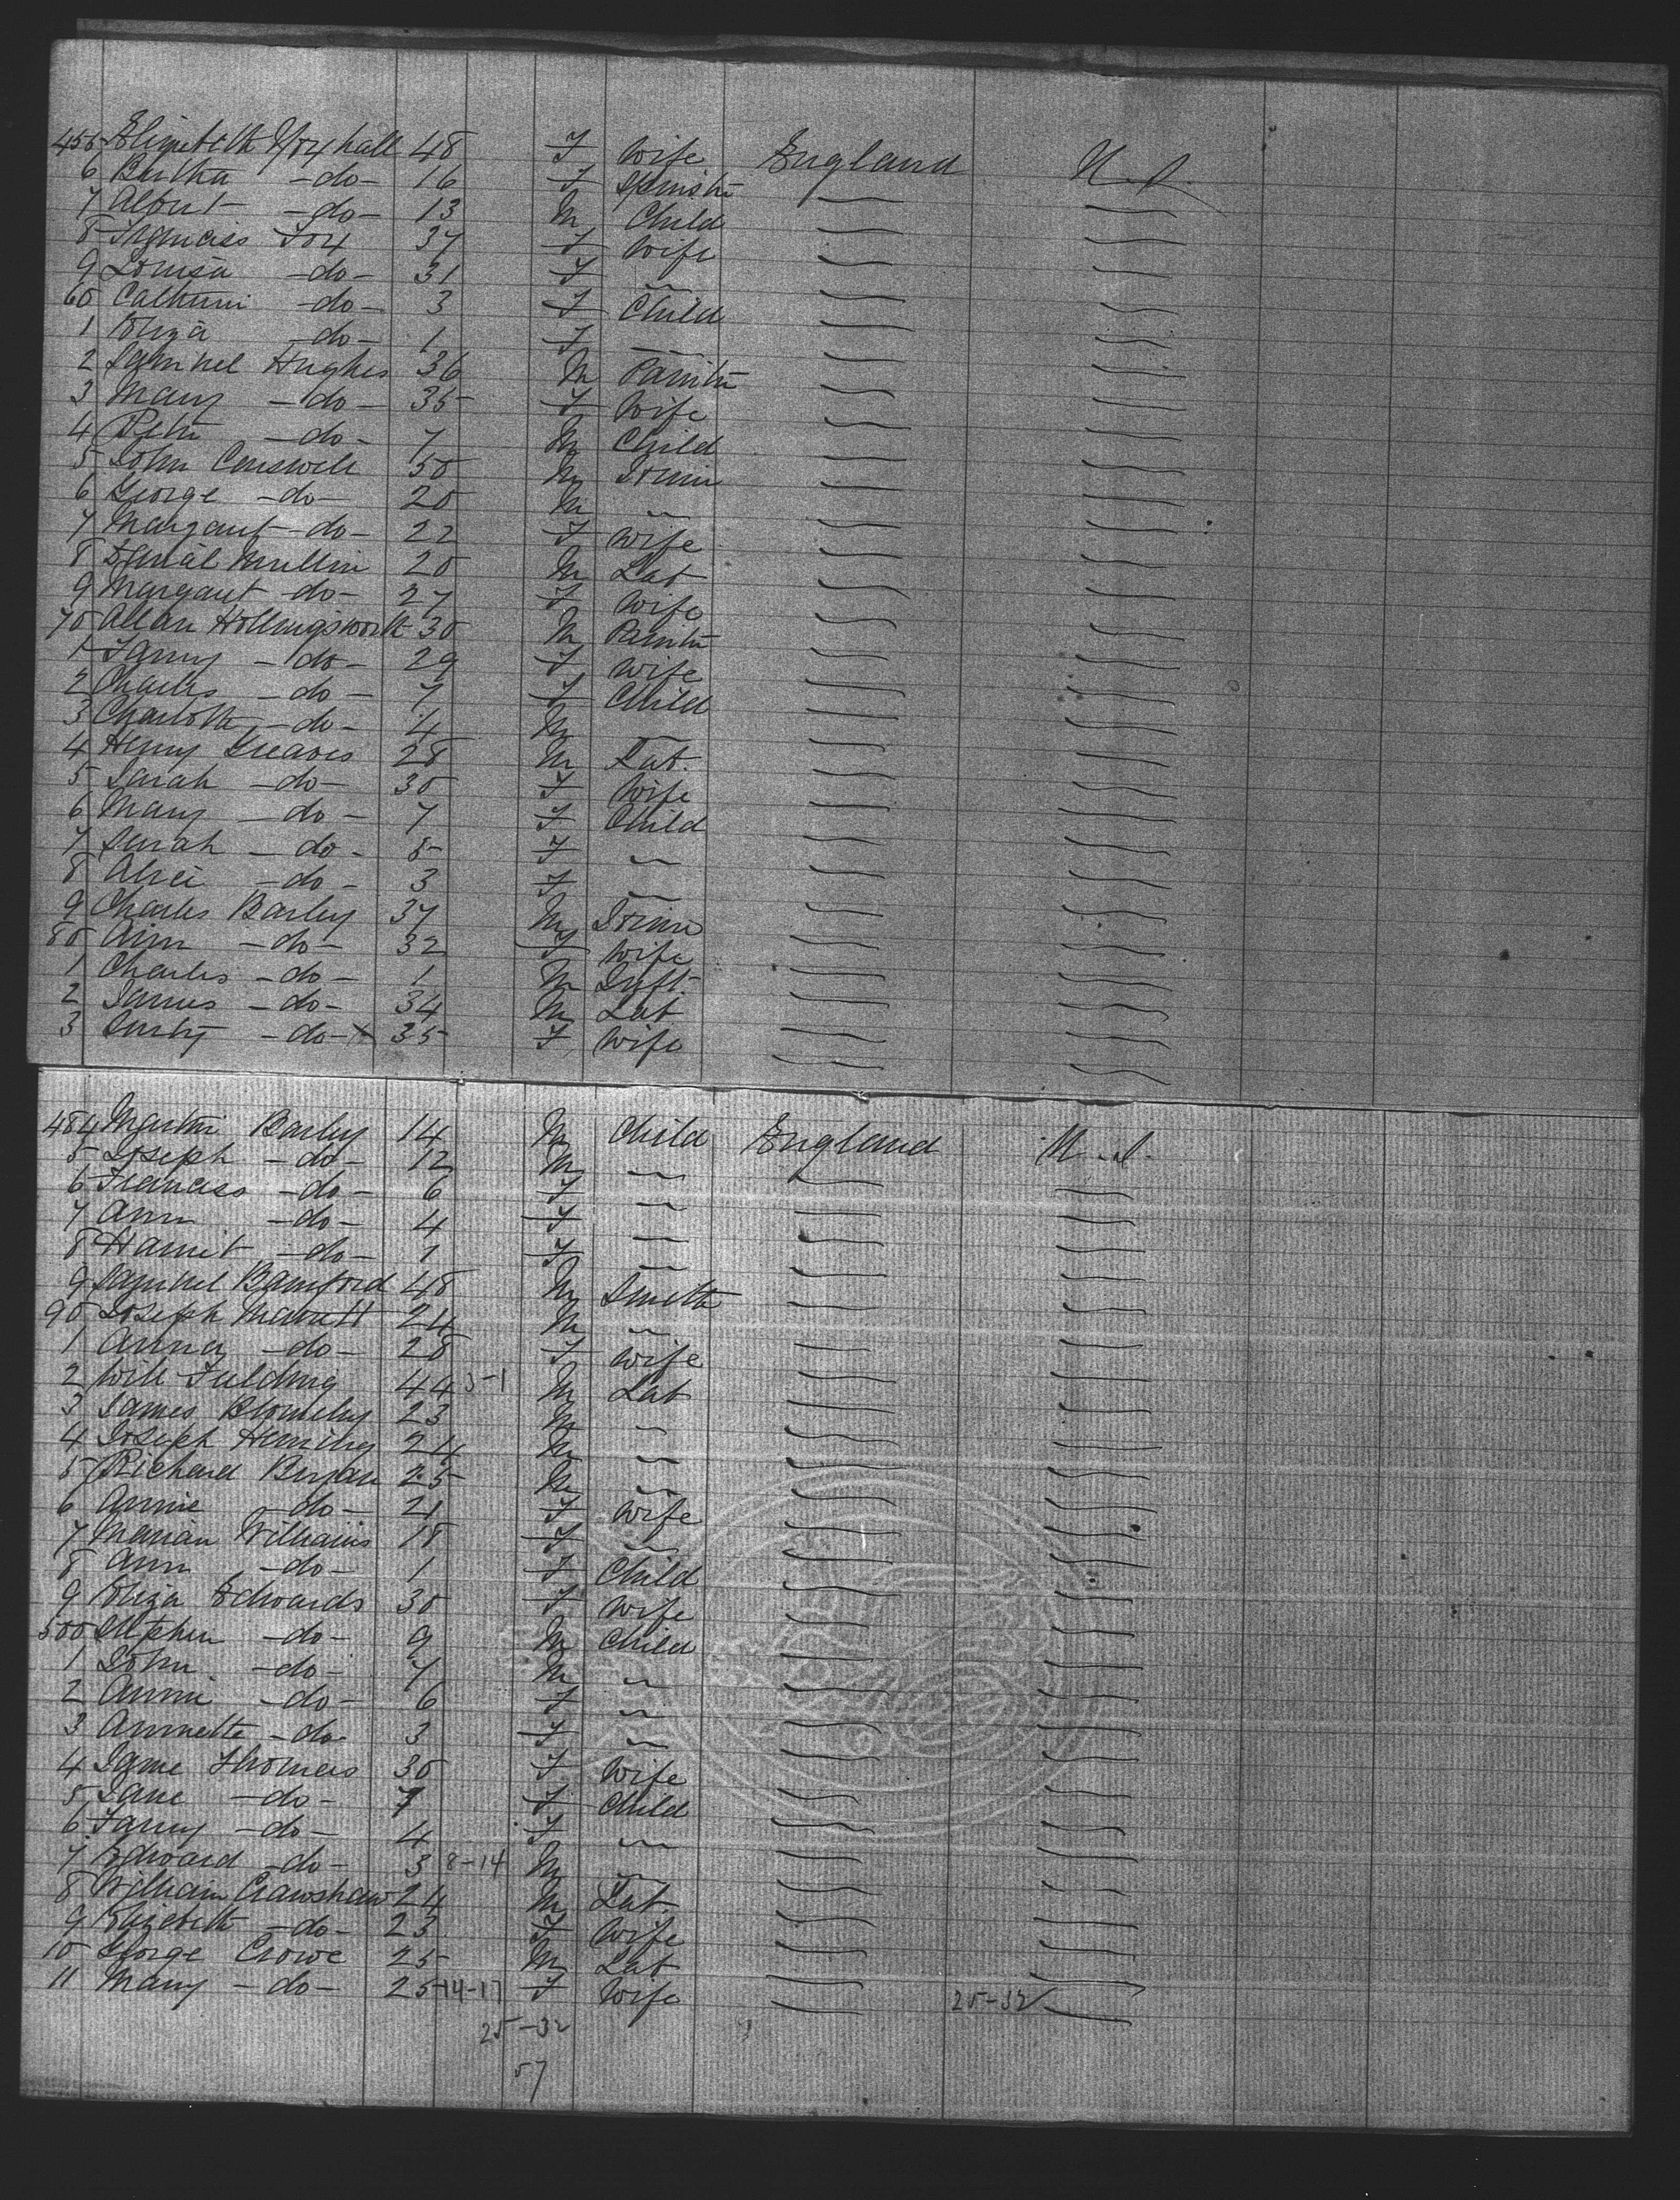 455 Elizabeth Yoxhall 48 F Wife England U.S.
6 Bertha -do- 16 F Spinster
7 Albert -do- 13 M Child
8 Franciss Fox 37 F Wife
9 Louisa -do- 31 F "
60 Catherine -do- 3 F Child
1 Eliza -do- 1 F "
2 Samuel Hughes 36 M Painter
3 Mary -do- 35 F Wife
4 Peter -do- 7 M Child
5 John 50 M Joiner
6 George -do- 20 M "
7 Margaret -do- 22 F Wife
8 Danial Mullin 20 M Lab
9 Margaret -do- 27 F Wife
70 Allan Hollingsworth 30 M Painter
1 Fanny -do- 29 F Wife
2 Charles -do- 7 F Child
3 Charlotte -do- 4 M "
4 Henry Greaves 28 M Lab.
5 Sarah -do- 30 F Wife
6 Mary -do- 7 F Child
7 Sarah -do- 5 F "
8 Alice -do- 3 F "
9 Charles Barley 37 M Joiner
80 Ann -do- 32 F Wife
1 Charles -do- 1 M Inft
2 James -do- 34 M Lab
3 -do- 35 F Wife
484 Martin Barley 14 M Child England U.S.
5 Joseph -do- 12 M "
6 Franciss -do- 6 F "
7 Ann -do- 4 F "
8 Harriet -do- 1 F "
9 Samuel Bamford 48 M Smith
90 Joseph 24 M "
1 Anna -do- 28 F Wife
2 Will Fielding 44 5-1 M Lab
3 James 23 M "
4 Joseph 24 M "
5 Richard 25 M "
6 Annie -do- 21 F Wife
7 Marian Williams 18 F "
8 Ann -do- 1 F Child
9 Eliza Edwards 30 F Wife
500 Stephen -do- 9 M Child
1 John -do- 7 M "
2 Annie -do- 6 F "
3 Annette -do- 3 F "
4 Jane Thomas 30 F Wife
5 Jane -do- 7 F Child
6 Fanny -do- 4 F "
7 Edward -do- 3 8-14 M "
8 William Crawshaw 24 M Lab.
9 Elizabeth -do- 23 F Wife
10 George Crowe 25 M Lab
11 Mary -do- 25 14-17 F Wife 25-32
25-32
57